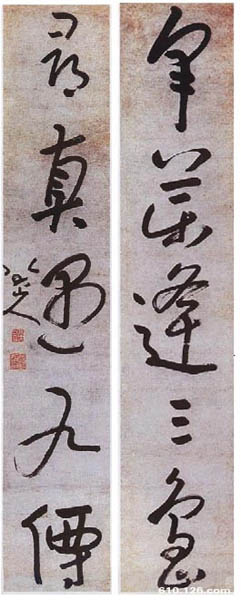 采藥逢三島
尋真遇九僊
八大山人
610.126.com